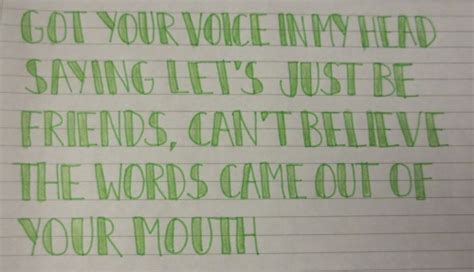 GOT YOUR VOICE IN MY HEAD
SAYING LET'S JUST BE
FRIENDS, CAN'T BELIEVE
THE WORDS CAME OUT OF
YOUR MOUTH